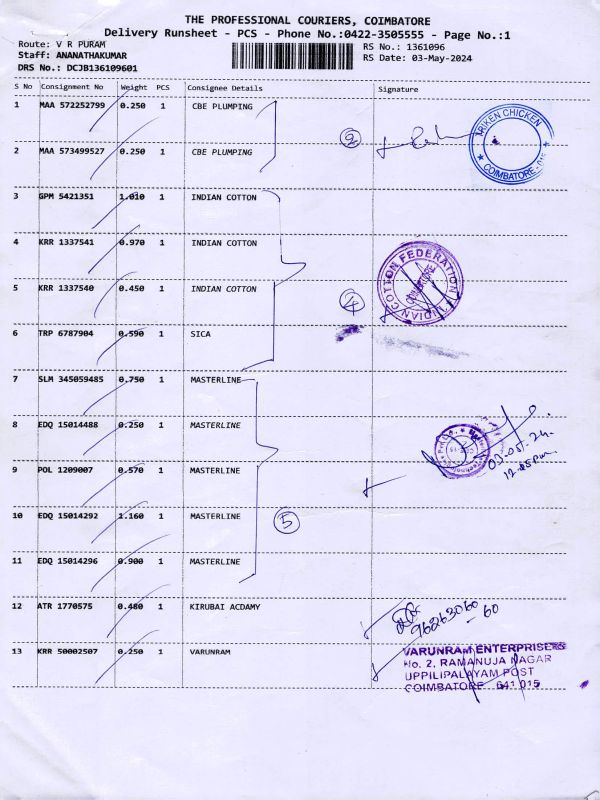 THE PROFESSIONAL COURIERS, COIMBATORE
Delivery Runsheet - PCS - Phone No.:0422-3505555 - Page No.:1
Route: V R PURAM
Staff: ANANATHAKUMAR
DRS No.: DCJB136109601
RS No.: 1361096
RS Date: 03-May-2024
S No Consignment No Weight PCS Consignee Details Signature
1 MAA 572252799 0.250 1 CBE PLUMPING
2
ARIKEN CHICKEN
COIMBATORE - 015
2 MAA 573499527 0.250 1 CBE PLUMPING
3 GPM 5421351 1.010 1 INDIAN COTTON
4 KRR 1337541 0.970 1 INDIAN COTTON
5 KRR 1337540 0.450 1 INDIAN COTTON
4
INDIAN COTTON FEDERATION
COIMBATORE
6 TRP 6787904 0.590 1 SICA
7 SLM 345059485 0.750 1 MASTERLINE
8 EDQ 15014488 0.250 1 MASTERLINE
03-05-24
9 POL 1209007 0.570 1 MASTERLINE
10 EDQ 15014292 1.160 1 MASTERLINE
5
11 EDQ 15014296 0.900 1 MASTERLINE
12 ATR 1770575 0.480 1 KIRUBAI ACDAMY
9626306060
13 KRR 50002507 0.250 1 VARUNRAM
VARUNRAM ENTERPRISERS
No. 2, RAMANUJA NAGAR
UPPILIPALAYAM POST
COIMBATORE 641 015